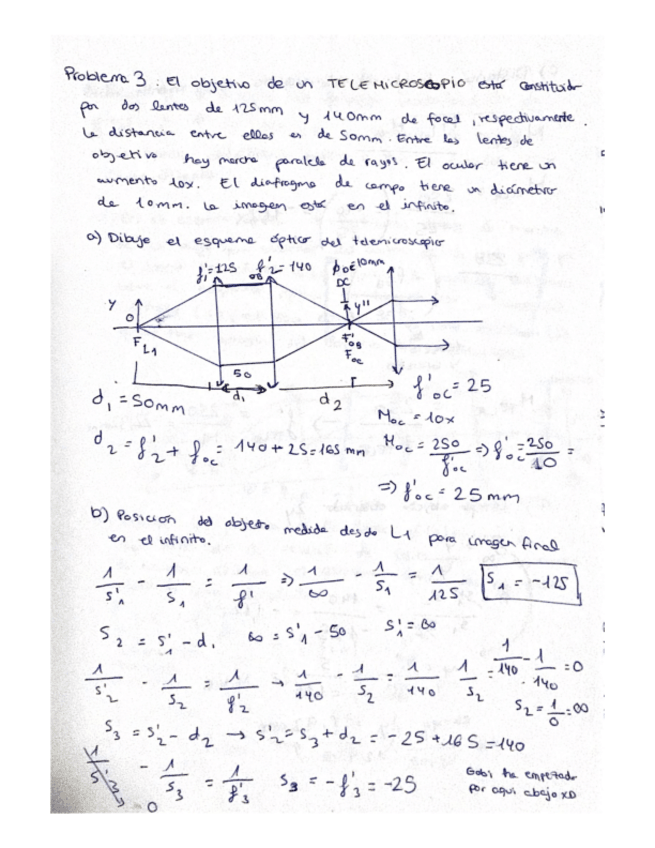 Problema 3. El objetivo de un TELEMICROSCOPIO está constituido
por dos lentes de 125mm y 140mm de focal, respectivamente.
La distancia entre ellas es de 50mm. Entre las lentes de
objetivo hay marcha paralela de rayos. El ocular tiene un
aumento 10x. El diafragma de campo tiene un diámetro
de 10mm. La imagen está en el infinito.
a) Dibuje el esquema óptico del telemicroscopio
f'1=125 f'2=140 ϕDC=10mm
OB DC
y O y''
F L1 F'OB
Foc
50
d1 d2 f'oc = 25
d1 = 50mm Moc = 10x
d2 = f'2 + foc = 140+25=165 mm Moc = 250/f'oc => f'oc = 250/10 =
=> f'oc = 25mm
b) Posición del objeto medida desde L1 para imagen final
en el infinito.
1/s'1 - 1/s1 = 1/f' => 1/∞ - 1/s1 = 1/125 s1 = -125
s2 = s'1 - d1 ∞ = s'1 - 50 s'1 = ∞
1/s'2 - 1/s2 = 1/f'2 → 1/140 - 1/s2 = 1/140 1/s2 = 1/140 - 1/140 = 0
s2 = 1/0 = ∞
s3 = s'2 - d2 → s'2 = s3 + d2 = -25 + 165 = 140
1/s'3 - 1/s3 = 1/f'3 s3 = -f'3 = -25
0
Gabi ha empezado
por aquí abajo XD